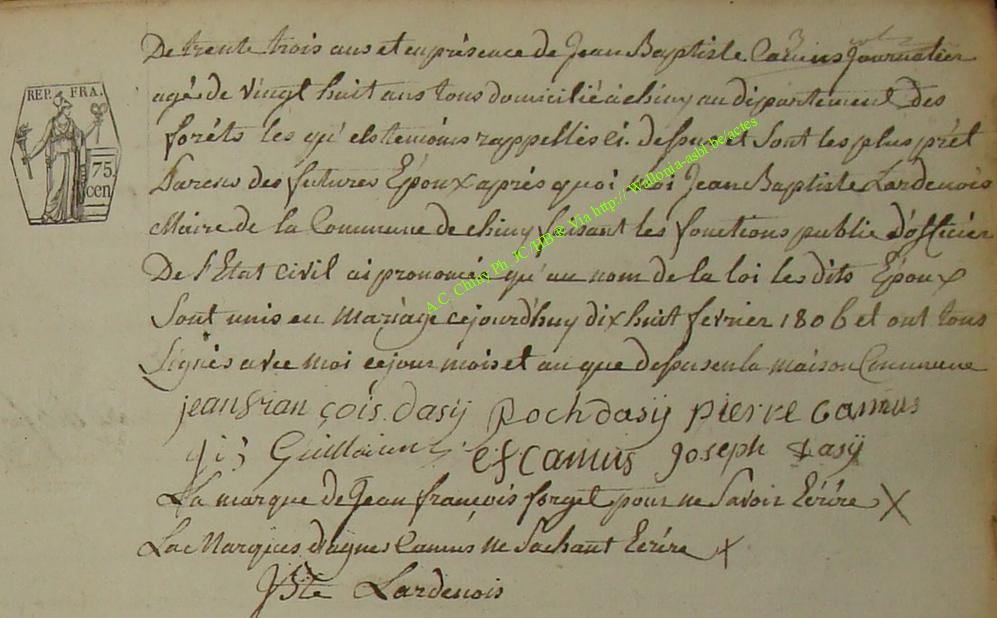 REP. FRA.
75.
cen.
De trente trois ans et en présence de Jean Baptiste Camus Journalier
agé de vingt huit ans tous domicilié a chiny au département des
forêts les qu'els temoins rappellés ci. dessus et sont les plus prêt
Parens des futures Époux après quoi moi Jean Baptiste Lardenois
Maire de la Commune de chiny faisant les fonctions public d'officier
De l'Etat civil ai prononcé qu'au nom de la loi les dits Époux
Sont unis en mariage cejourd'huy dix huit fevrier 1806 et ont tous
Signés avec moi ce jour mois et an que dessus en la maison Commune
jean fran çois. dasij Roch dasij pierre Camus
Guillaume ef Camus Joseph dasij
La marque de Jean françois forget pour ne Savoir Ecrire X
La Marques d'agnes Camus ne Sachant Ecrire X
JBte Lardenois
A.C. Chiny Ph JC/HB & Via http:// Wallonia-asbl be/actes